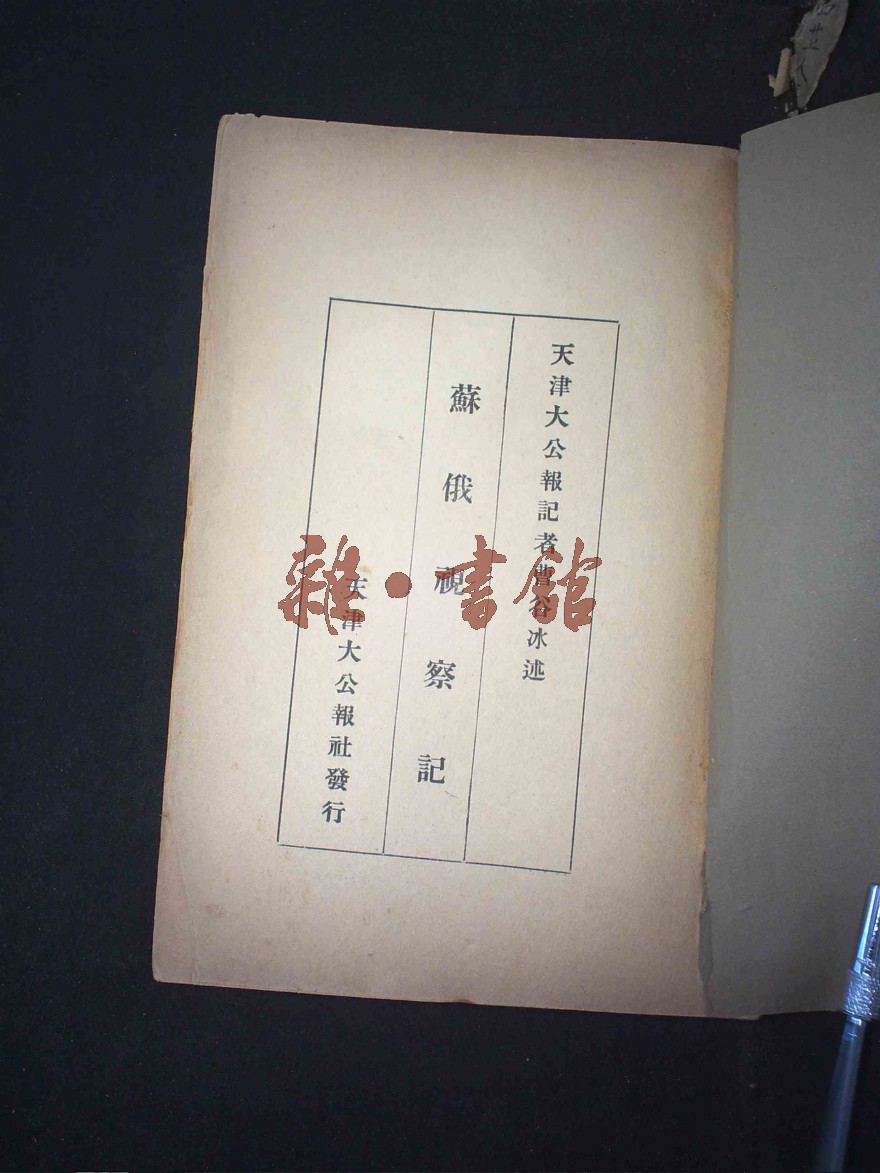 天津大公報記者曹谷冰述
蘇俄視察記
天津大公報社發行
雜·書館